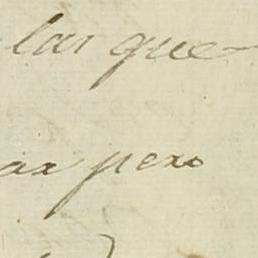 las que
ax pexo